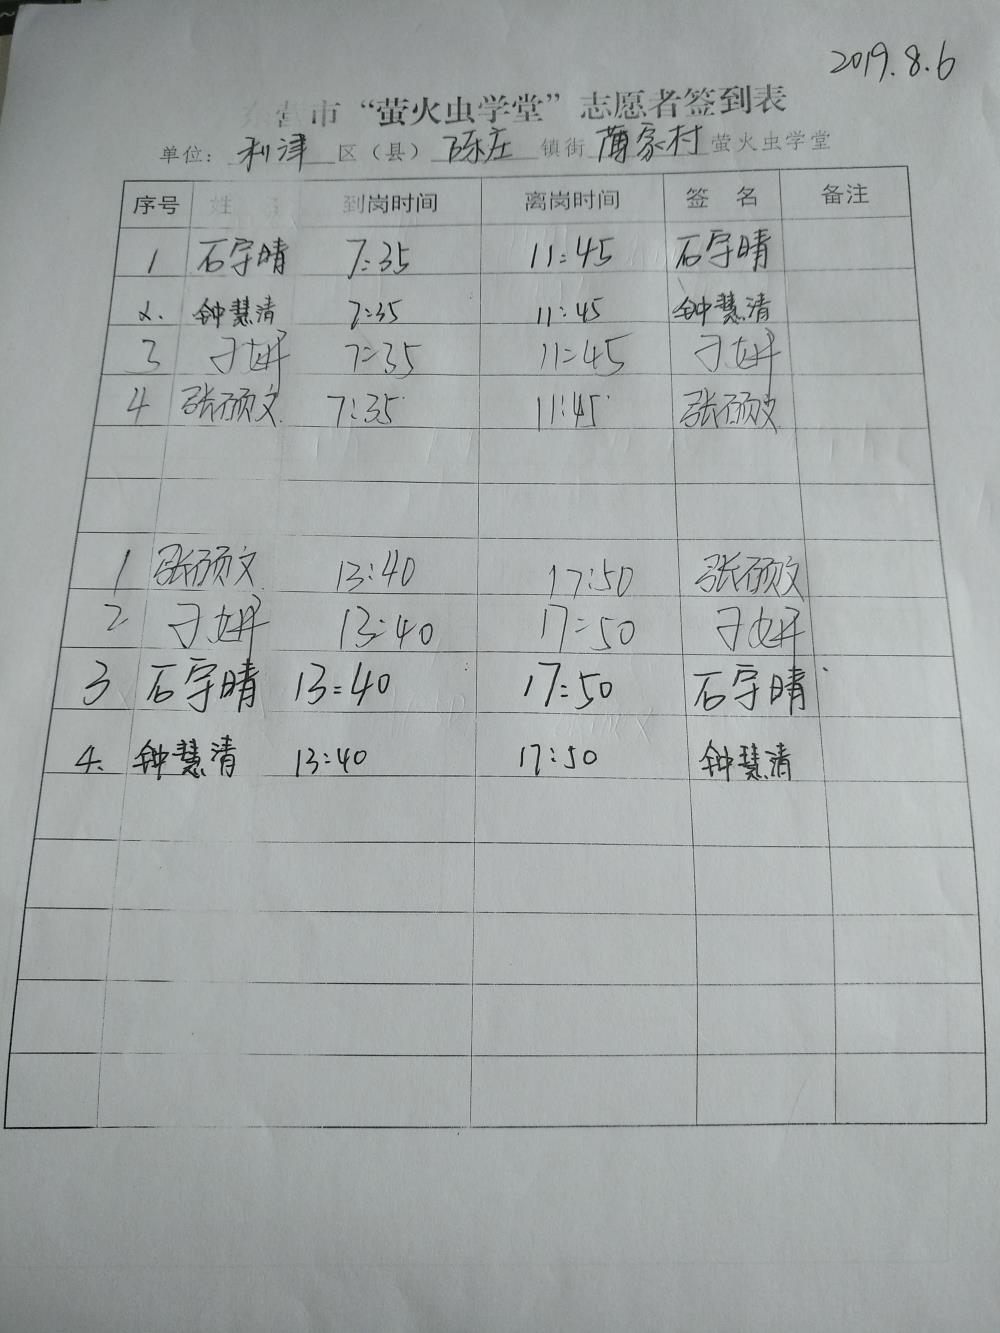 2019.8.6
东营市“萤火虫学堂”志愿者签到表
单位: 利津 区（县） 陈庄 镇街 薄家村 萤火虫学堂
序号 姓 名 到岗时间 离岗时间 签 名 备注
1 石宇晴 7:35 11:45 石宇晴
2. 钟慧清 7:35 11:45 钟慧清
3 于妍 7:35 11:45 于妍
4 张硕文 7:35 11:45 张硕文
1 张硕文 13:40 17:50 张硕文
2 于妍 13:40 17:50 于妍
3 石宇晴 13:40 17:50 石宇晴
4. 钟慧清 13:40 17:50 钟慧清